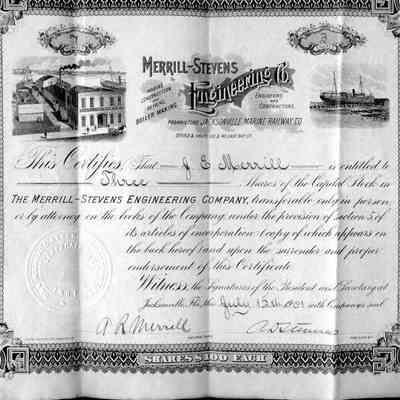 3
MERRILL-STEVENS
Engineering Co.
MARINE CONSTRUCTION REPAIRS, BOILER MAKING.
ENGINEERS AND CONTRACTORS.
PROPRIETORS JACKSONVILLE MARINE RAILWAY CO.
This Certifies, That J E Merrill is entitled to
Three Shares of the Capital Stock in
THE MERRILL-STEVENS ENGINEERING COMPANY, transferable only in person
or by attorney on the books of the Company under the provision of section 5, of
its articles of incorporation (copy of which appears on
the back hereof) and upon the surrender and proper
endorsement of this Certificate.
Witness, the signatures of the President and Secretary at
Jacksonville, Fla. this July 15th 1901 with Company seal
A R Merrill
A D Stevens
SHARES $100 EACH